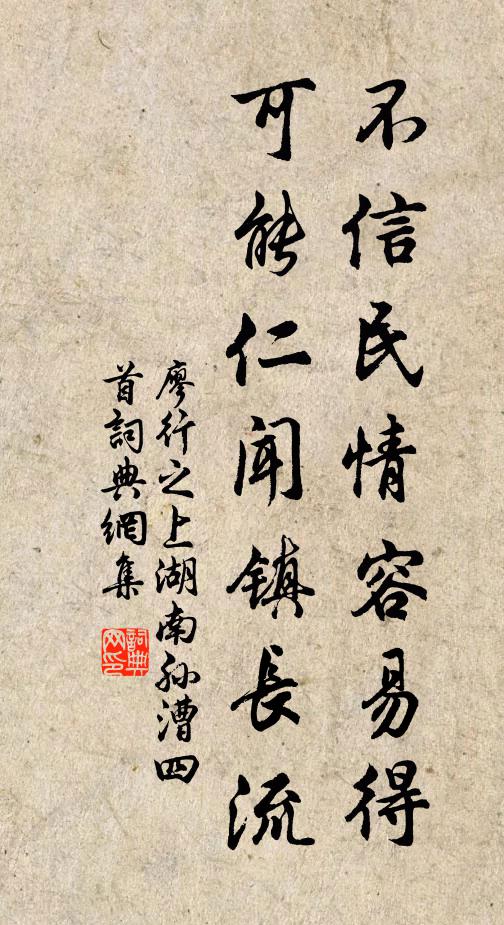 不信民情容易得
可能仁闻镇長流
廖行之上湖南孙漕四
首詞典網集
詞典网印